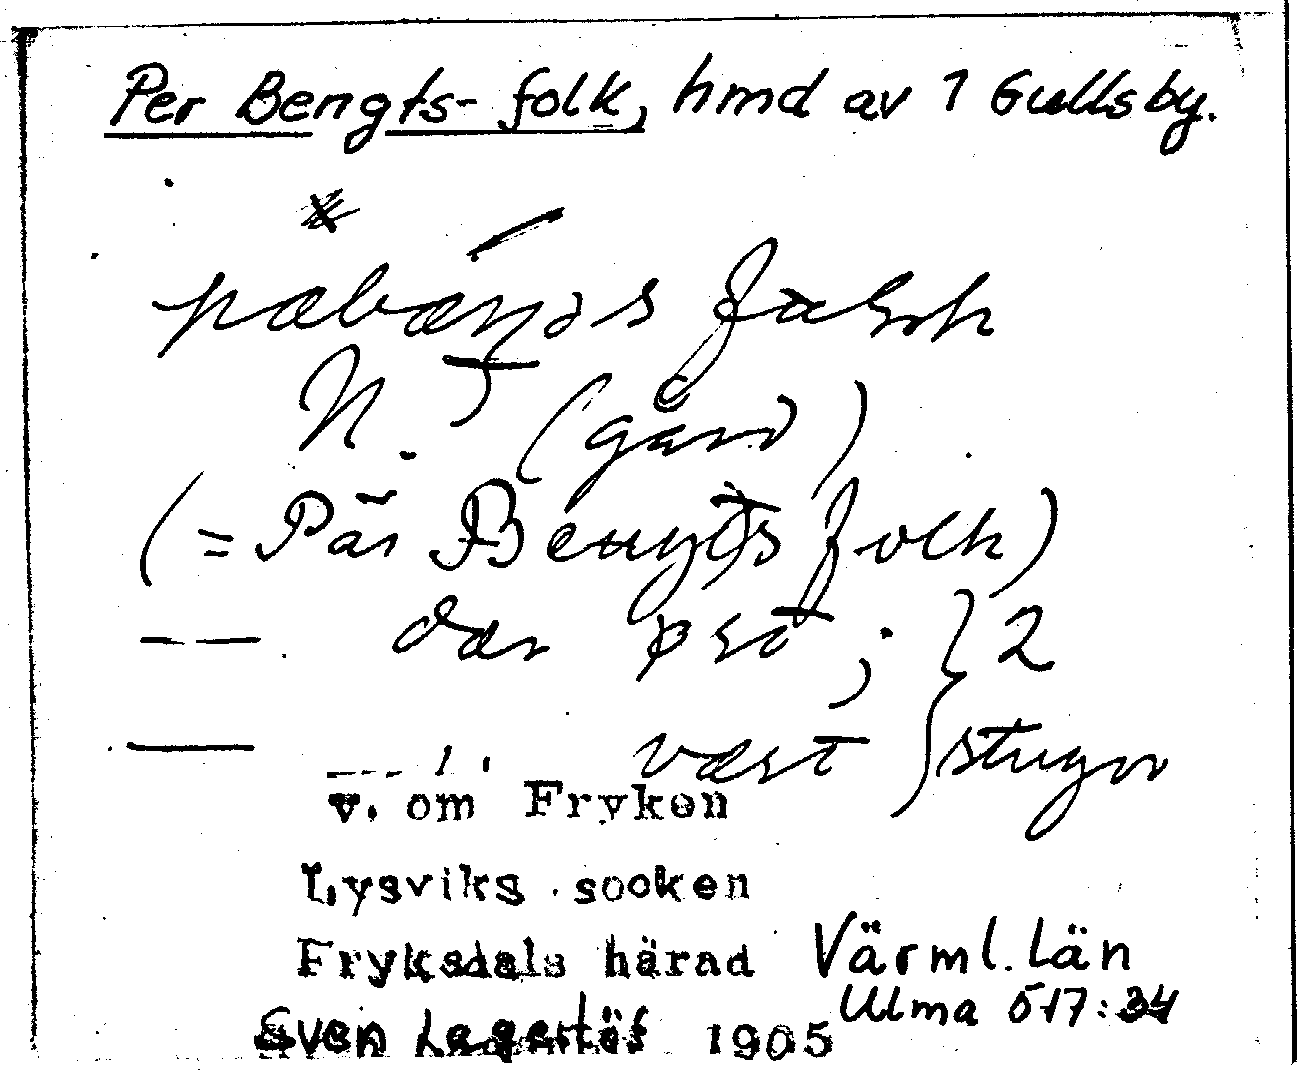 Per Bengts-folk, hmd av 1 Gullsby.
N. (gård)
(= Pär Bengts folk)
— — där öst ; } 2
— väst } stugor
v. om Fryken
Lysviks socken
Fryksdals härad Värml. län
Ulma 517:34
Sven Lagerlöf 1905